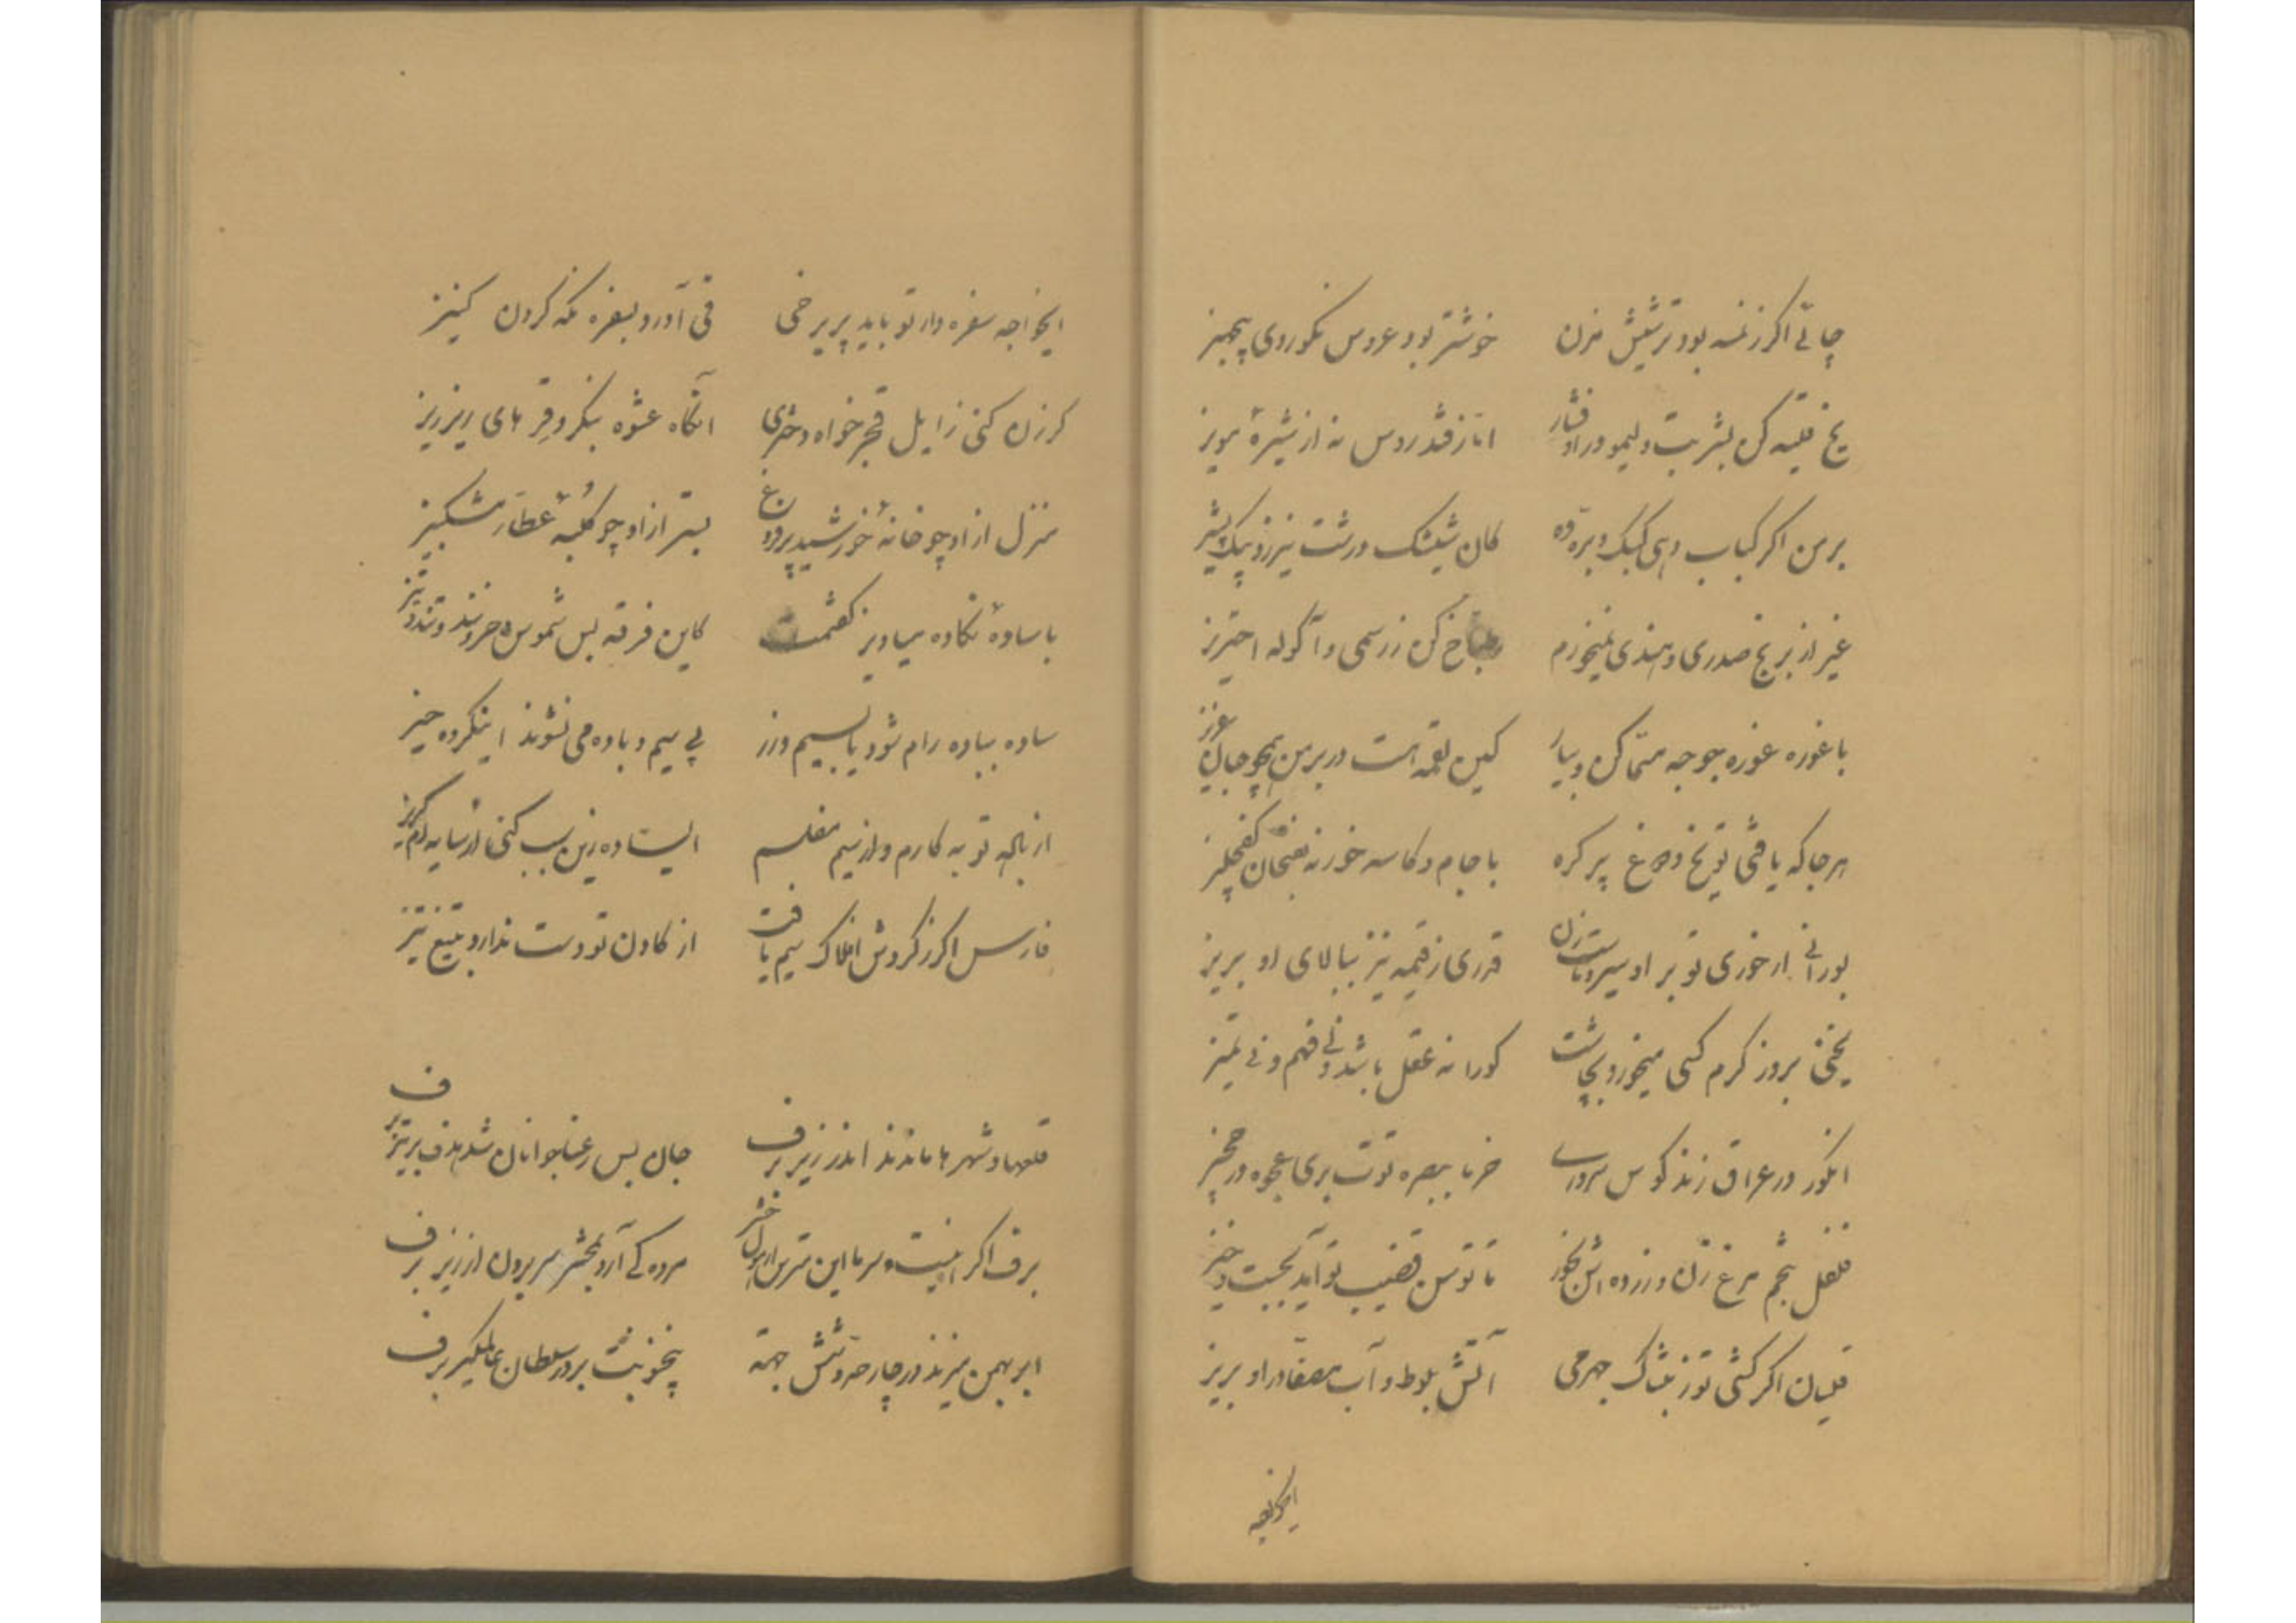 چائی اگر ز لمسه بود ترشیش مزن خوشتر بود عروس نکوروی بیجهیز
یخ قلیه کن بشربت و لیمو در او فشار اما ز قند روس نه از شیرهٔ مویز
بر من اگر کباب دهی کبک و بره ده کان شیشک درشت نیرزد بیک پشیز
غیر از برنج صدری و هندی نمیخورم طباخ کن ز رسمی و آکوله احتریز
با غوره غوره جوجه مسمّا کن و بیار کین لقمه است در بر من همچو جان عزیز
هر جا که یافتی تو یخ و دوغ پر کره با جام و کاسه خور نه بفنجان کفچلیز
بورانی ار خوری تو بر او سیر و ماست زن قدری ز قیمه نیز ببالای او بریز
یخنی بروز گرم کسی میخورد بچاشت کورا نه عقل باشد و نی فهم و نی تمیز
انگور در عراق زند کوس سروری خرما ببصره توت بری عجوه در حجیز
فلفل بتخم مرغ زن و زرده اش بخور تا توسن قضیب تو آید بجست و خیز
قلیان اگر کشی تو ز تنباک جهرمی آتش بلوط و آب مصفّا در او بریز
ایخواجه
ایخواجه سفره دار تو باید پریرخی قی آورد بسفره نگه کردن کنیز
گر زن کنی ز ایل قجر خواه دختری آنگاه عشوه بنگر و قر های ریز ریز
منزل از او چو خانهٔ خورشید پر فروغ بستر از او چو کلبهٔ عطار مشکبیز
با سادهٔ نگاده میاویز گفتمت کاین فرقه بس شموس و حرونند و تند و تیز
ساده بباده رام شود یا بسیم و زر بی سیم و باده می نشوند اینگروه حیز
از باده توبه کارم و از سیم مفلسم ای ساده زین سبب کنی از سایه ام گریز
فارس اگر ز گردش افلاک سیم یافت از گادن تو دست ندارد بتیغ تیز
قلعها و شهر ها ماندند اندر زیر برف جان بس رعنا جوانان شد هدف بر تیر برف
برف اگر اینست و سرما این مترس از هول حشر مرده کی آرد بمحشر سر برون از زیر برف
ابر بهمن میزند در چار حد و شش جهة پنج نوبت بر در سلطان عالمگیر برف